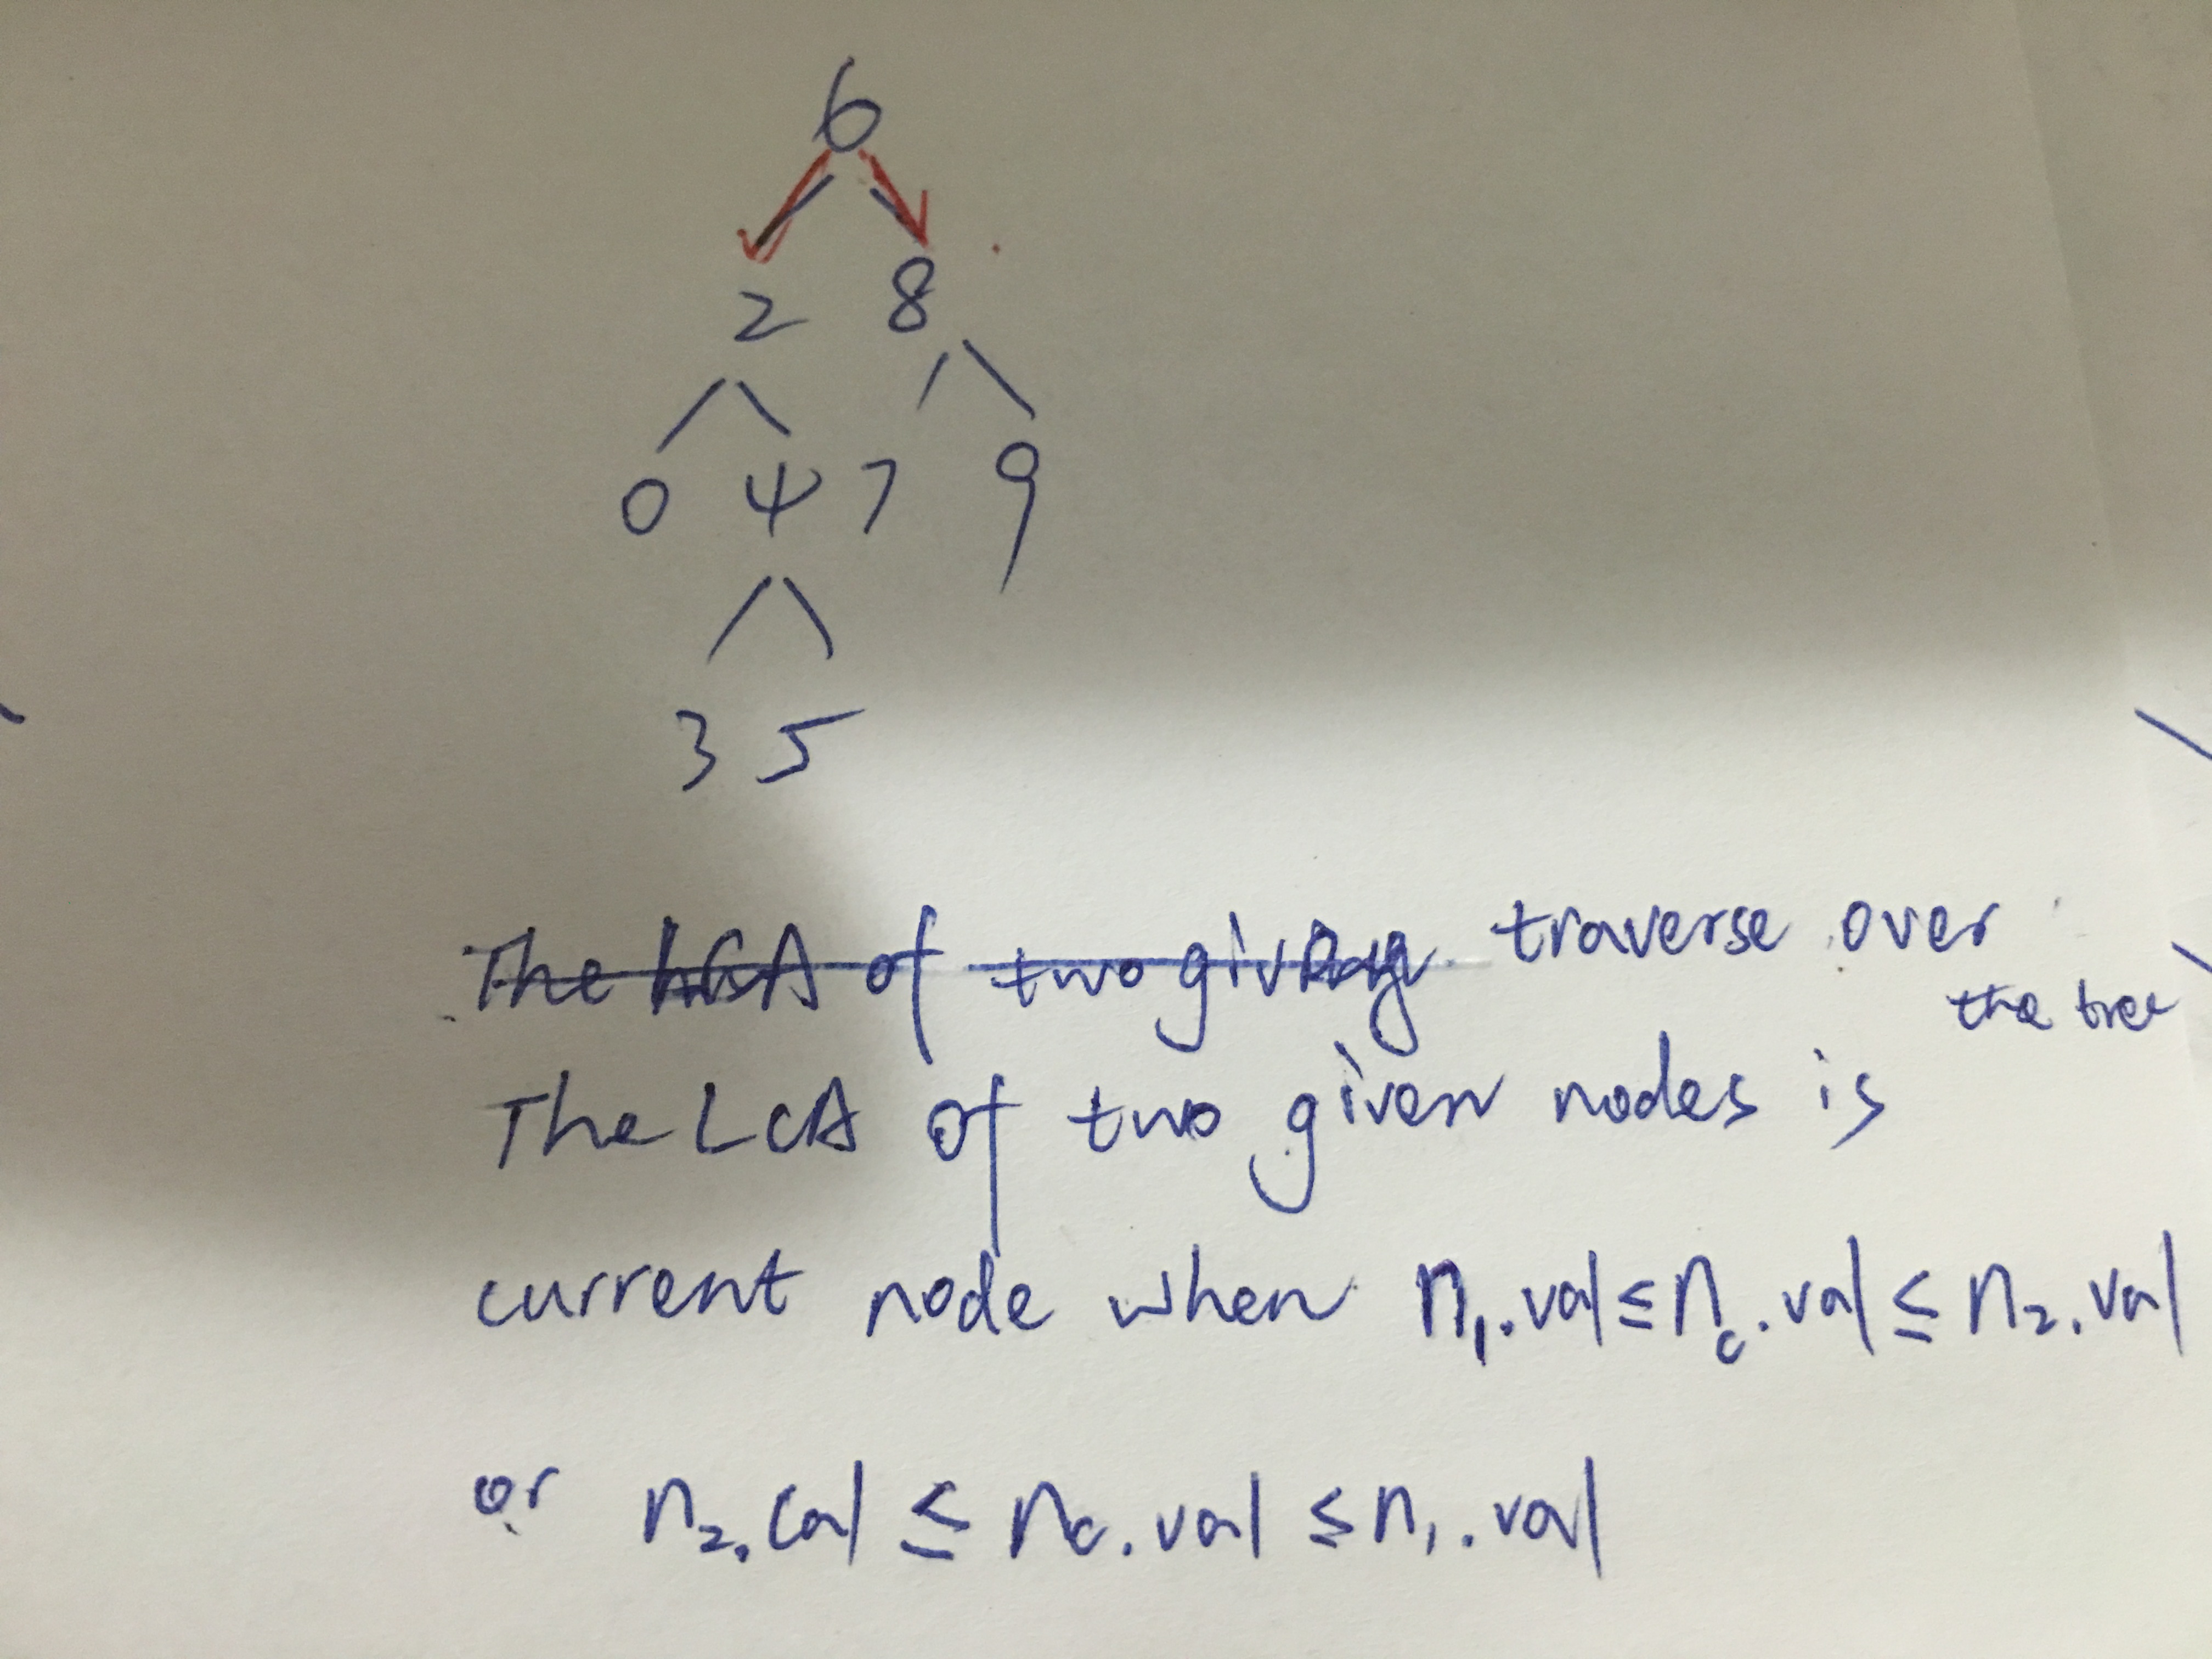 6
2 8
0 4 7 9
3 5
The LCA of two given traverse over
the tree
The LCA of two given nodes is
current node when n₁.val ≤ nc.val ≤ n₂.val
or n₂.val ≤ nc.val ≤ n₁.val